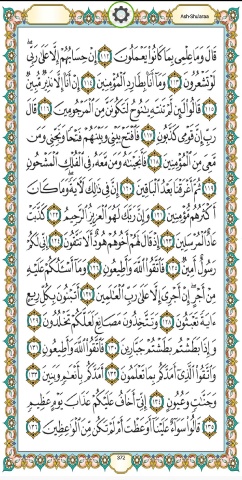 Ash-Shu'araa
قَالَ وَمَا عِلْمِى بِمَا كَانُوا۟ يَعْمَلُونَ ١١٢ إِنْ حِسَابُهُمْ إِلَّا عَلَىٰ رَبِّى
لَوْ تَشْعُرُونَ ١١٣ وَمَآ أَنَا۠ بِطَارِدِ ٱلْمُؤْمِنِينَ ١١٤ إِنْ أَنَا۠ إِلَّا نَذِيرٌ مُّبِينٌ
١١٥ قَالُوا۟ لَئِن لَّمْ تَنتَهِ يَـٰنُوحُ لَتَكُونَنَّ مِنَ ٱلْمَرْجُومِينَ ١١٦ قَالَ
رَبِّ إِنَّ قَوْمِى كَذَّبُونِ ١١٧ فَٱفْتَحْ بَيْنِى وَبَيْنَهُمْ فَتْحًا وَنَجِّنِى وَمَن
مَّعِىَ مِنَ ٱلْمُؤْمِنِينَ ١١٨ فَأَنجَيْنَـٰهُ وَمَن مَّعَهُۥ فِى ٱلْفُلْكِ ٱلْمَشْحُونِ
١١٩ ثُمَّ أَغْرَقْنَا بَعْدُ ٱلْبَاقِينَ ١٢٠ إِنَّ فِى ذَٰلِكَ لَـَٔايَةً وَمَا كَانَ
أَكْثَرُهُم مُّؤْمِنِينَ ١٢١ وَإِنَّ رَبَّكَ لَهُوَ ٱلْعَزِيزُ ٱلرَّحِيمُ ١٢٢ كَذَّبَتْ
عَادٌ ٱلْمُرْسَلِينَ ١٢٣ إِذْ قَالَ لَهُمْ أَخُوهُمْ هُودٌ أَلَا تَتَّقُونَ ١٢٤ إِنِّى لَكُمْ
رَسُولٌ أَمِينٌ ١٢٥ فَٱتَّقُوا۟ ٱللَّهَ وَأَطِيعُونِ ١٢٦ وَمَآ أَسْـَٔلُكُمْ عَلَيْهِ
مِنْ أَجْرٍ إِنْ أَجْرِىَ إِلَّا عَلَىٰ رَبِّ ٱلْعَـٰلَمِينَ ١٢٧ أَتَبْنُونَ بِكُلِّ رِيعٍ
ءَايَةً تَعْبَثُونَ ١٢٨ وَتَتَّخِذُونَ مَصَانِعَ لَعَلَّكُمْ تَخْلُدُونَ ١٢٩
وَإِذَا بَطَشْتُم بَطَشْتُمْ جَبَّارِينَ ١٣٠ فَٱتَّقُوا۟ ٱللَّهَ وَأَطِيعُونِ ١٣١
وَٱتَّقُوا۟ ٱلَّذِىٓ أَمَدَّكُم بِمَا تَعْلَمُونَ ١٣٢ أَمَدَّكُم بِأَنْعَـٰمٍ وَبَنِينَ ١٣٣
وَجَنَّـٰتٍ وَعُيُونٍ ١٣٤ إِنِّىٓ أَخَافُ عَلَيْكُمْ عَذَابَ يَوْمٍ عَظِيمٍ
١٣٥ قَالُوا۟ سَوَآءٌ عَلَيْنَآ أَوَعَظْتَ أَمْ لَمْ تَكُن مِّنَ ٱلْوَٰعِظِينَ ١٣٦
372